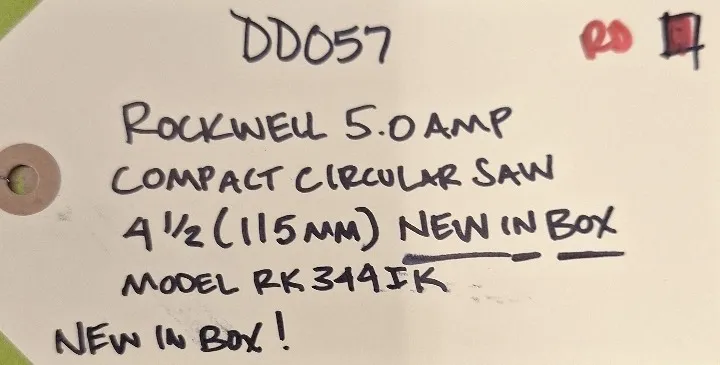 DD057 RD
ROCKWELL 5.0 AMP
COMPACT CIRCULAR SAW
4 1/2 (115MM) NEW IN BOX
MODEL RK344IK
NEW IN BOX!